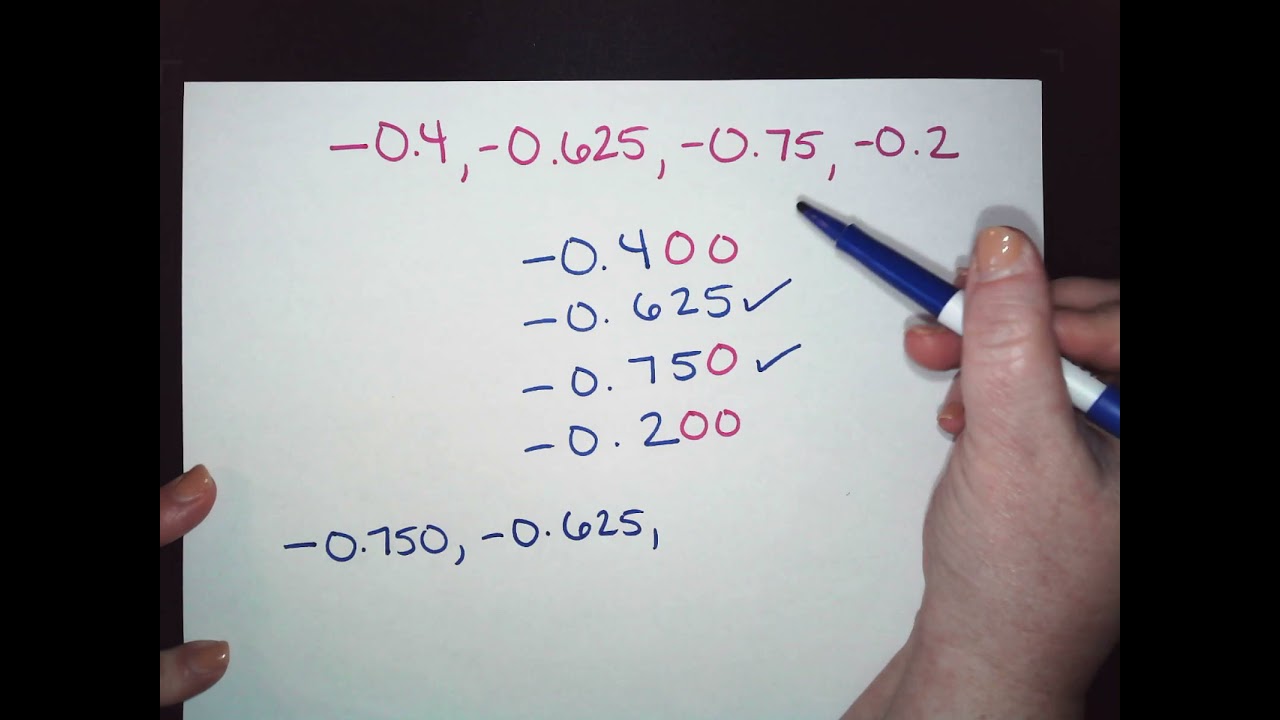 -0.4, -0.625, -0.75, -0.2
-0.400
-0.625 ✓
-0.750 ✓
-0.200
-0.750, -0.625,